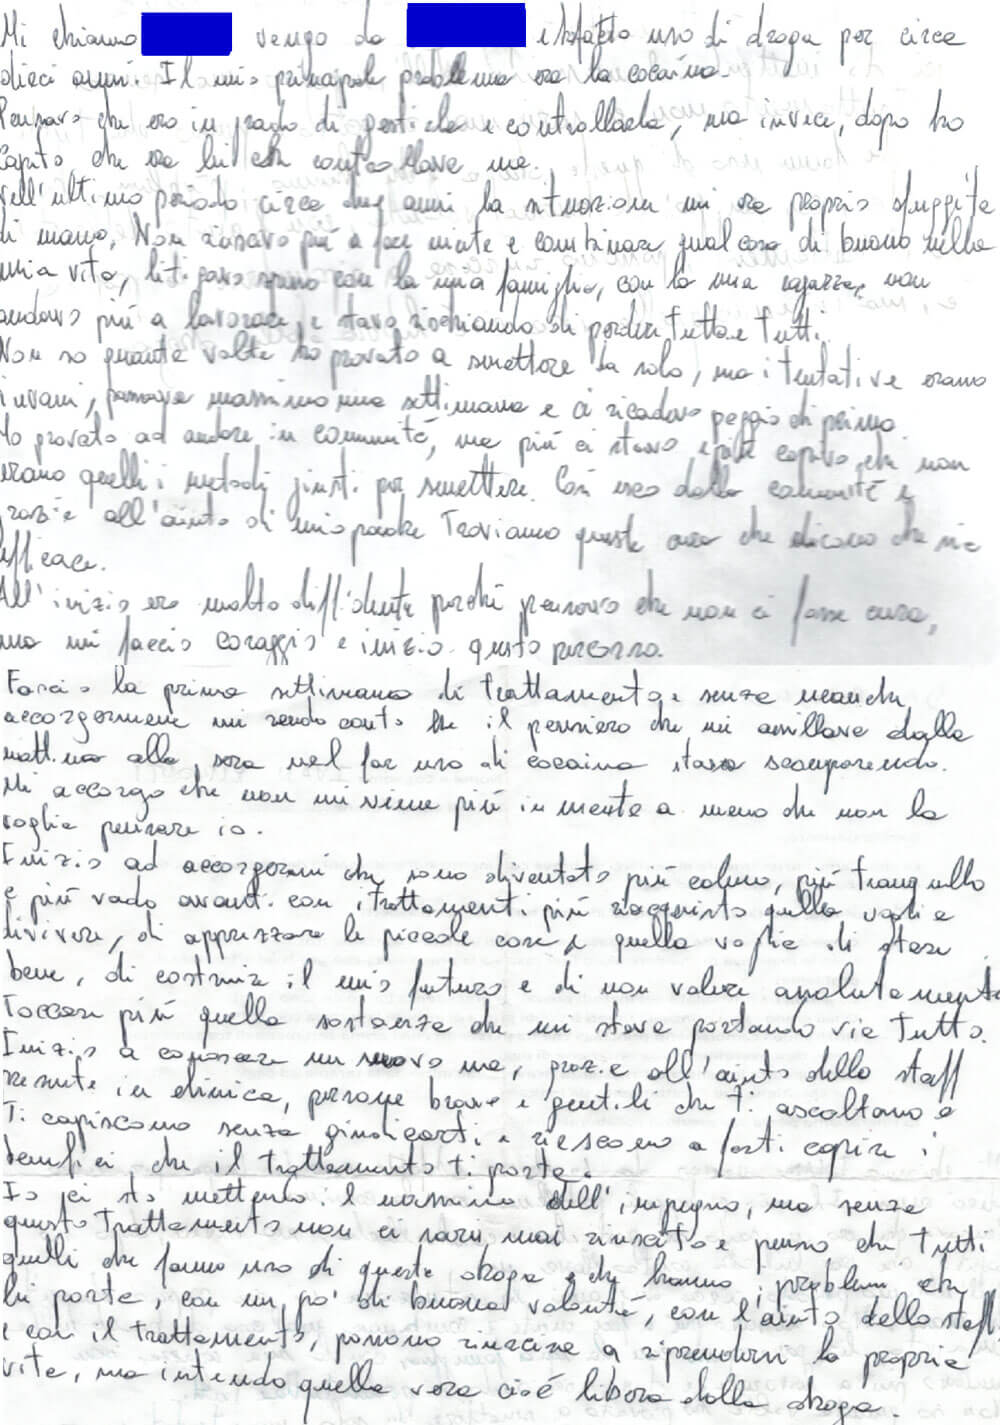 Mi chiamo vengo da e ho fatto uso di droga per circa
dieci anni. Il mio principale problema era la cocaina.
Pensavo che ero in grado di gestirla e controllarla, ma invece, dopo ho
capito che era lui che controllava me.
Nell'ultimo periodo circa due anni la situazione mi era proprio sfuggita
di mano. Non riuscivo più a fare niente e combinare qualcosa di buono nella
mia vita, litigavo spesso con la mia famiglia, con la mia ragazza, non
andavo più a lavorare, e stavo rischiando di perdere tutto e tutti.
Non so quante volte ho provato a smettere da solo, ma i tentative erano
invani, passava massimo una settimana e ci ricadevo peggio di prima
Ho provato ad andare in comunità, ma più ci stavo e più capivo che non
erano quelli i metodi giusti per smettere. Così esco dalla comunità e
grazie all'aiuto di mio padre troviamo questa cura che dicono che sia
efficace.
All'inizio ero molto diffidente perché pensavo che non ci fosse cura,
ma mi faccio coraggio e inizio questo percorso.
Faccio la prima settimana di trattamento e senza neanche
accorgermene mi rendo conto che il pensiero che mi assillava dalla
mattina alla sera nel far uso di cocaina stava scomparendo.
Mi accorgo che non mi viene più in mente a meno che non la
voglia pensare io.
Inizio ad accorgermi che sono diventato più calmo, più tranquillo
e più vado avanti con i trattamenti più riacquisto quella voglia
di vivere, di apprezzare le piccole cose e quella voglia di stare
bene, di costruire il mio futuro e di non volere assolutamente
toccare più quella sostanza che mi stava portando via tutto.
Inizio a conoscere un nuovo me, grazie all'aiuto dello staff
presente in clinica, persone brave e gentili che ti ascoltano e
ti capiscono senza giudicarti e riescono a farti capire i
benefici che il trattamento ti porta.
Io ci sto mettendo il massimo dell'impegno, ma senza
questo trattamento non ci sarei mai riuscito e penso che tutti
quelli che fanno uso di questa droga e che hanno i problemi che
lei porta, con un po' di buona volontà, con l'aiuto dello staff
e con il trattamento, possono riuscire a riprendersi la propria
vita, ma intendo quella vera cioè libera dalla droga.